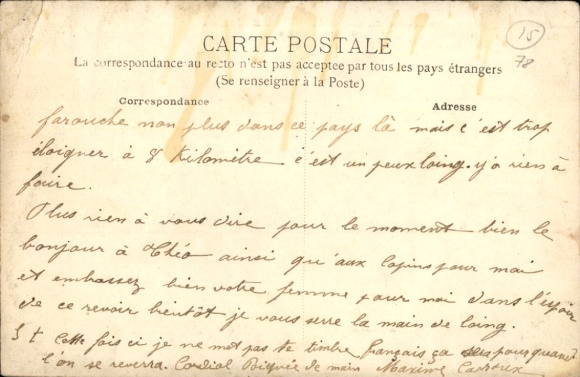 15
78
CARTE POSTALE
La correspondance au recto n'est pas acceptée par tous les pays étrangers
(Se renseigner à la Poste)
Correspondance
Adresse
farouche non plus dans ce pays là mais c'est trop
éloigner à 8 Kilomètre c'est un peux loing. y'a rien à
foire.
Plus rien à vous dire pour le moment bien le
bonjour à Théo ainsi qu'aux copins pour moi
et embassez bien votre femme pour moi dans l'éspoir
de ce revoir bientôt je vous serre la main de loing.
Cette fois ci je ne met pas te timbre français ça pour quand
l'on se reverra. Cordial Poignée de main Maxime